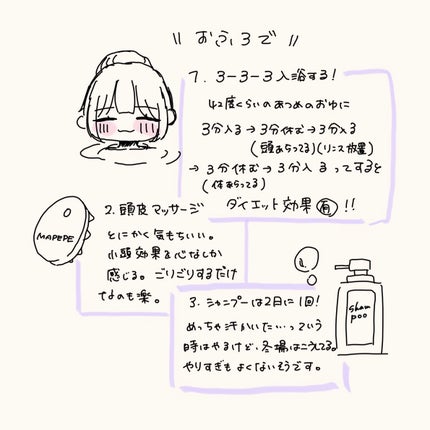 \\ おふろで //
1. 3-3-3入浴する!
42度くらいのあつめのおゆに
3分入る→3分休む→3分入る
(頭あらってる)(リンス放置)
→3分休む→3分入るってすると
(体あらってる)
ダイエット効果有!!
2. 頭皮マッサージ
とにかく気もちいい。
小顔効果を心なしか
感じる。ごりごりするだけ
なのも楽。
MAPEPE
3. シャンプーは2日に1回!
めっちゃ汗かいた…っていう
時はやるけど、冬場はこうしてる。
やりすぎもよくないそうです。
sham
poo